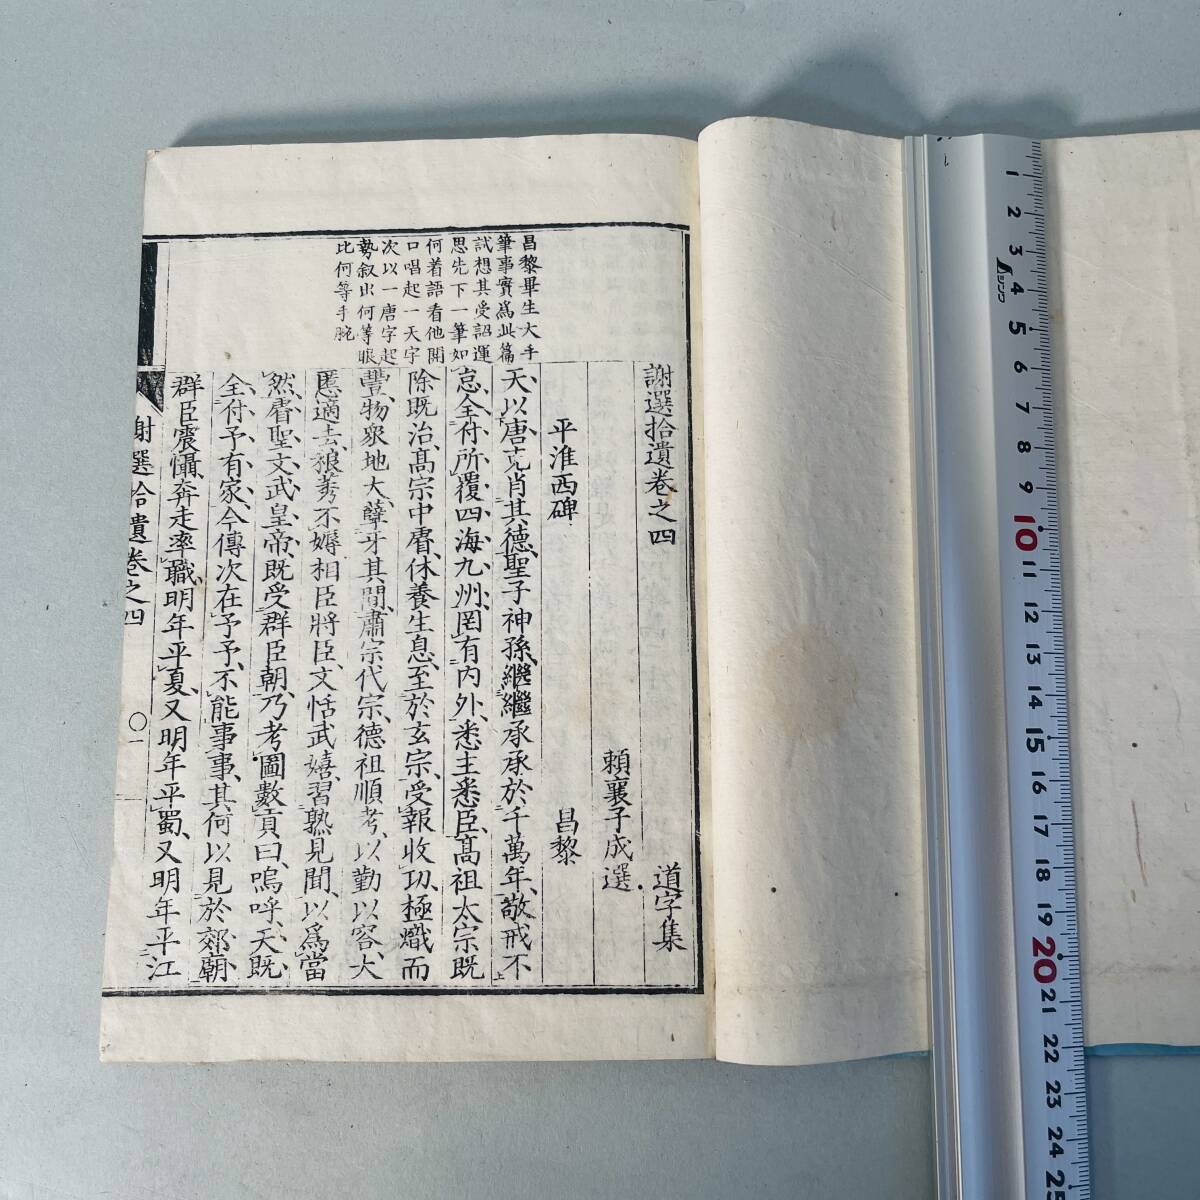 謝選拾遺卷之四　道字集
賴襄子成選
平淮西碑　昌黎
天、以唐克肖其德、聖子神孫、繼繼承承、於千萬年、敬戒不
怠、全付所覆、四海九州、罔有內外、悉主悉臣、高祖太宗既
除既治、高宗中睿、休養生息、至於玄宗、受報收功、極熾而
豐、物衆地大、孽牙其間、肅宗代宗、德祖順考、以勤以容、大
慝適去、稂莠不薅、相臣將臣、文恬武嬉、習熟見聞、以爲當
然、睿聖文武皇帝、既受群臣朝、乃考圖數貢曰、嗚呼、天既
全付予有家、今傳次在予、予不能事事、其何以見於郊廟、
群臣震懾、奔走率職、明年平夏、又明年平蜀、又明年平江
昌黎畢生大手
筆事實爲此篇
試想其受詔運
思先下一筆如
何着語看他開
口唱起一天字
次以一唐字起
勢叙出何等眼
比何等手腕
謝選拾遺卷之四
〇一
シンワ
1
2
3
4
5
6
7
8
9
10
11
12
13
14
15
16
17
18
19
20
21
22
23
24
25